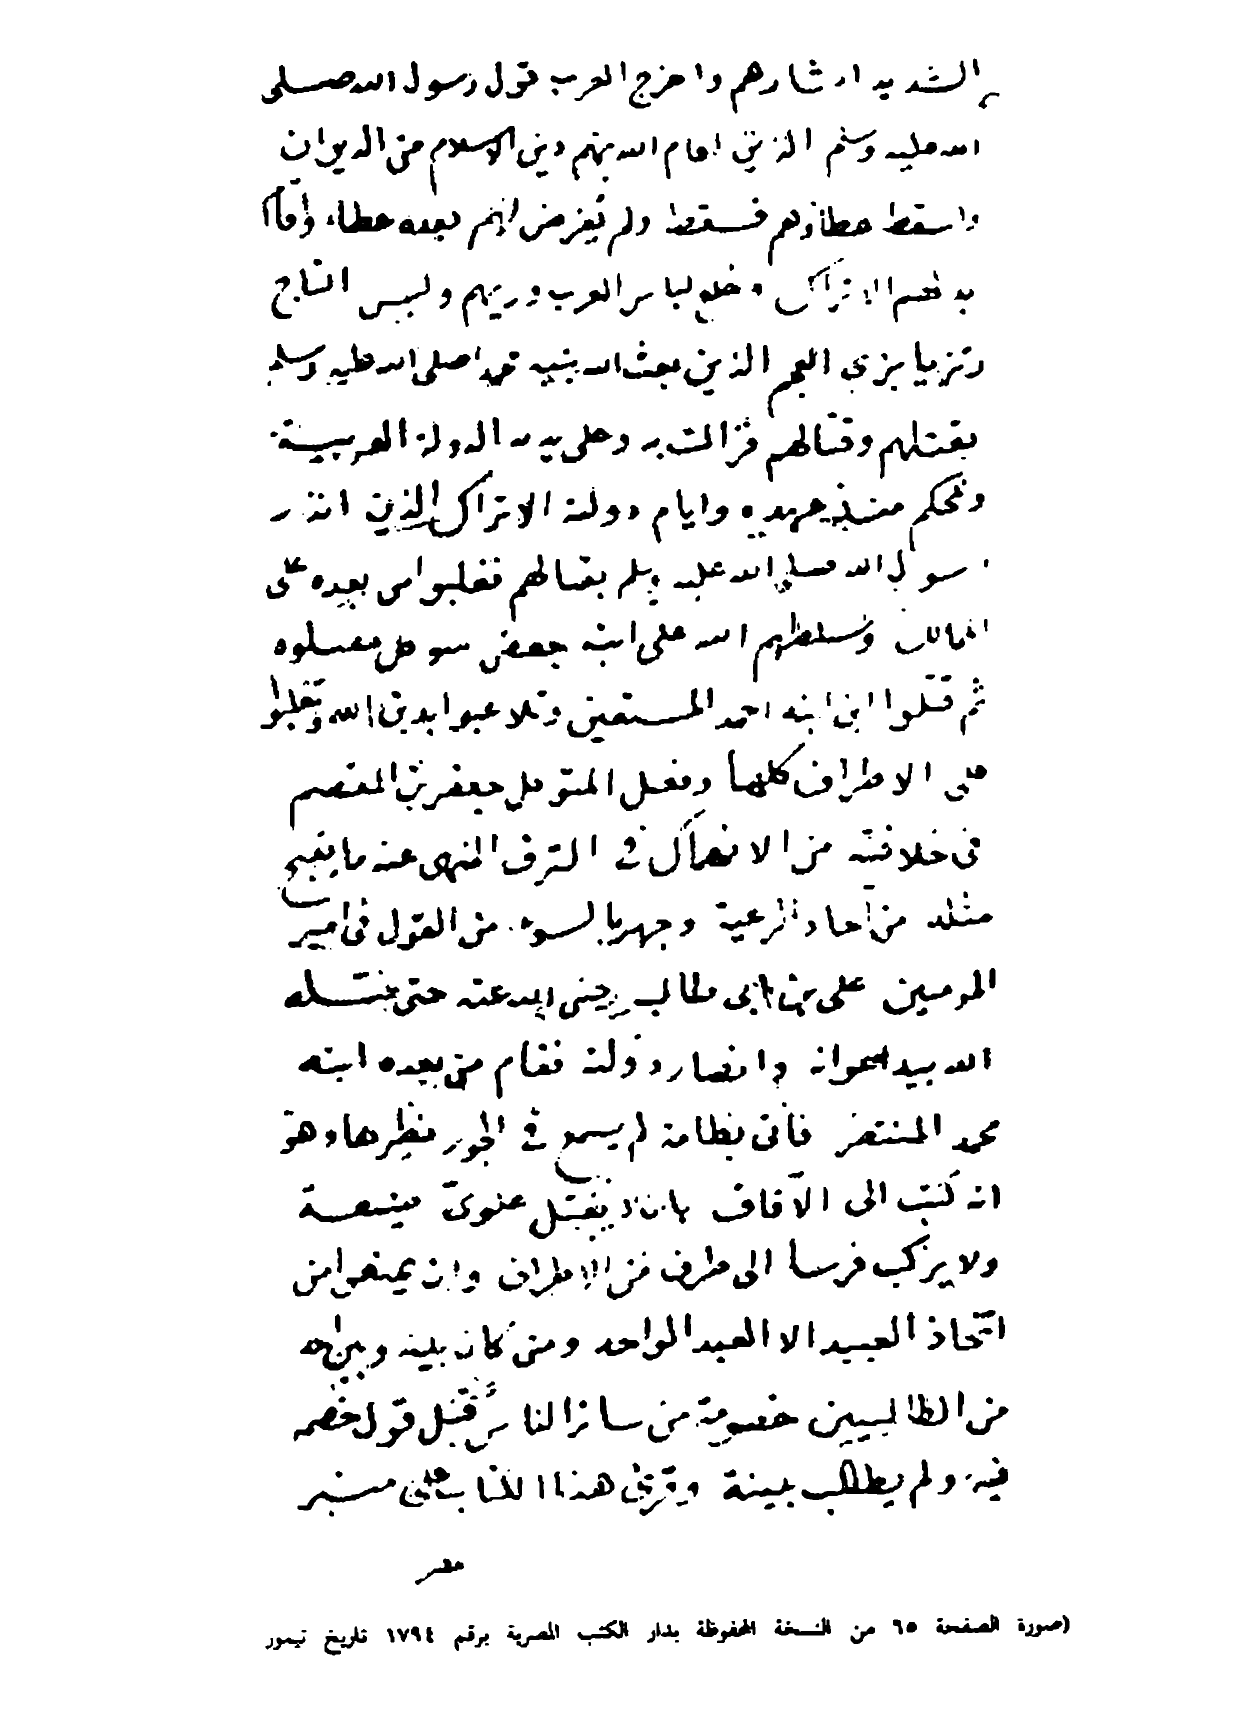 الشديد اثارهم واخرج العرب قوم رسول الله صلى
الله عليه وسلم الذين اقام الله بهم دين الاسلام من الديوان
واسقط عطاؤهم فسقط ولم يُفرض لهم بعده عطاء وأقام
بدلهم الاتراك وخلع لباس العرب وزيهم ولبس التاج
وتزيا بزي العجم الذين بعث الله نبيه محمدا صلى الله عليه وسلم
بقتلهم وقتالهم فزالت به وعلى يديه الدولة العربية
وتحكم منذ عهده وايام دولته الاتراك الذين انذر
رسول الله صلى الله عليه وسلم بقتالهم فغلبوا من بعده على
الممالك وسلطهم الله على ابنه جعفر المتوكل فقتلوه
ثم قتلوا ابن ابنه احمد المستعين وتلاعبوا بدين الله وتغلبوا
على الاطراف كلها وفعل المتوكل جعفر بن المعتصم
في خلافته من الانهماك في الترف المنهى عنه ما يقبح
مثله من آحاد الرعية وجهر بالسوء من القول في امير
المومنين على بن ابى طالب رضى الله عنه حتى قتله
الله بيد اعوانه وانصار دولته فقام من بعده ابنه
محمد المنتصر فاتى بطامة لم يسمع في الجور بنظيرها وهو
انه كتب الى الآفاق بان لا يقبل علوىّ ضيعة
ولا يركب فرسا الى طرف من الاطراف وان يمنعوا من
اتخاذ العبيد الا العبد الواحد ومن كان بينه وبين احد
من الطالبيين خصومة من سائر الناس قُبل قول خصمه
فيه ولم يطالب ببينة وقرئ هذا الكتاب على منبر
مصر
(صورة الصفحة ٦٥ من النسخة المحفوظة بدار الكتب المصرية برقم ١٧٩٤ تاريخ تيمور